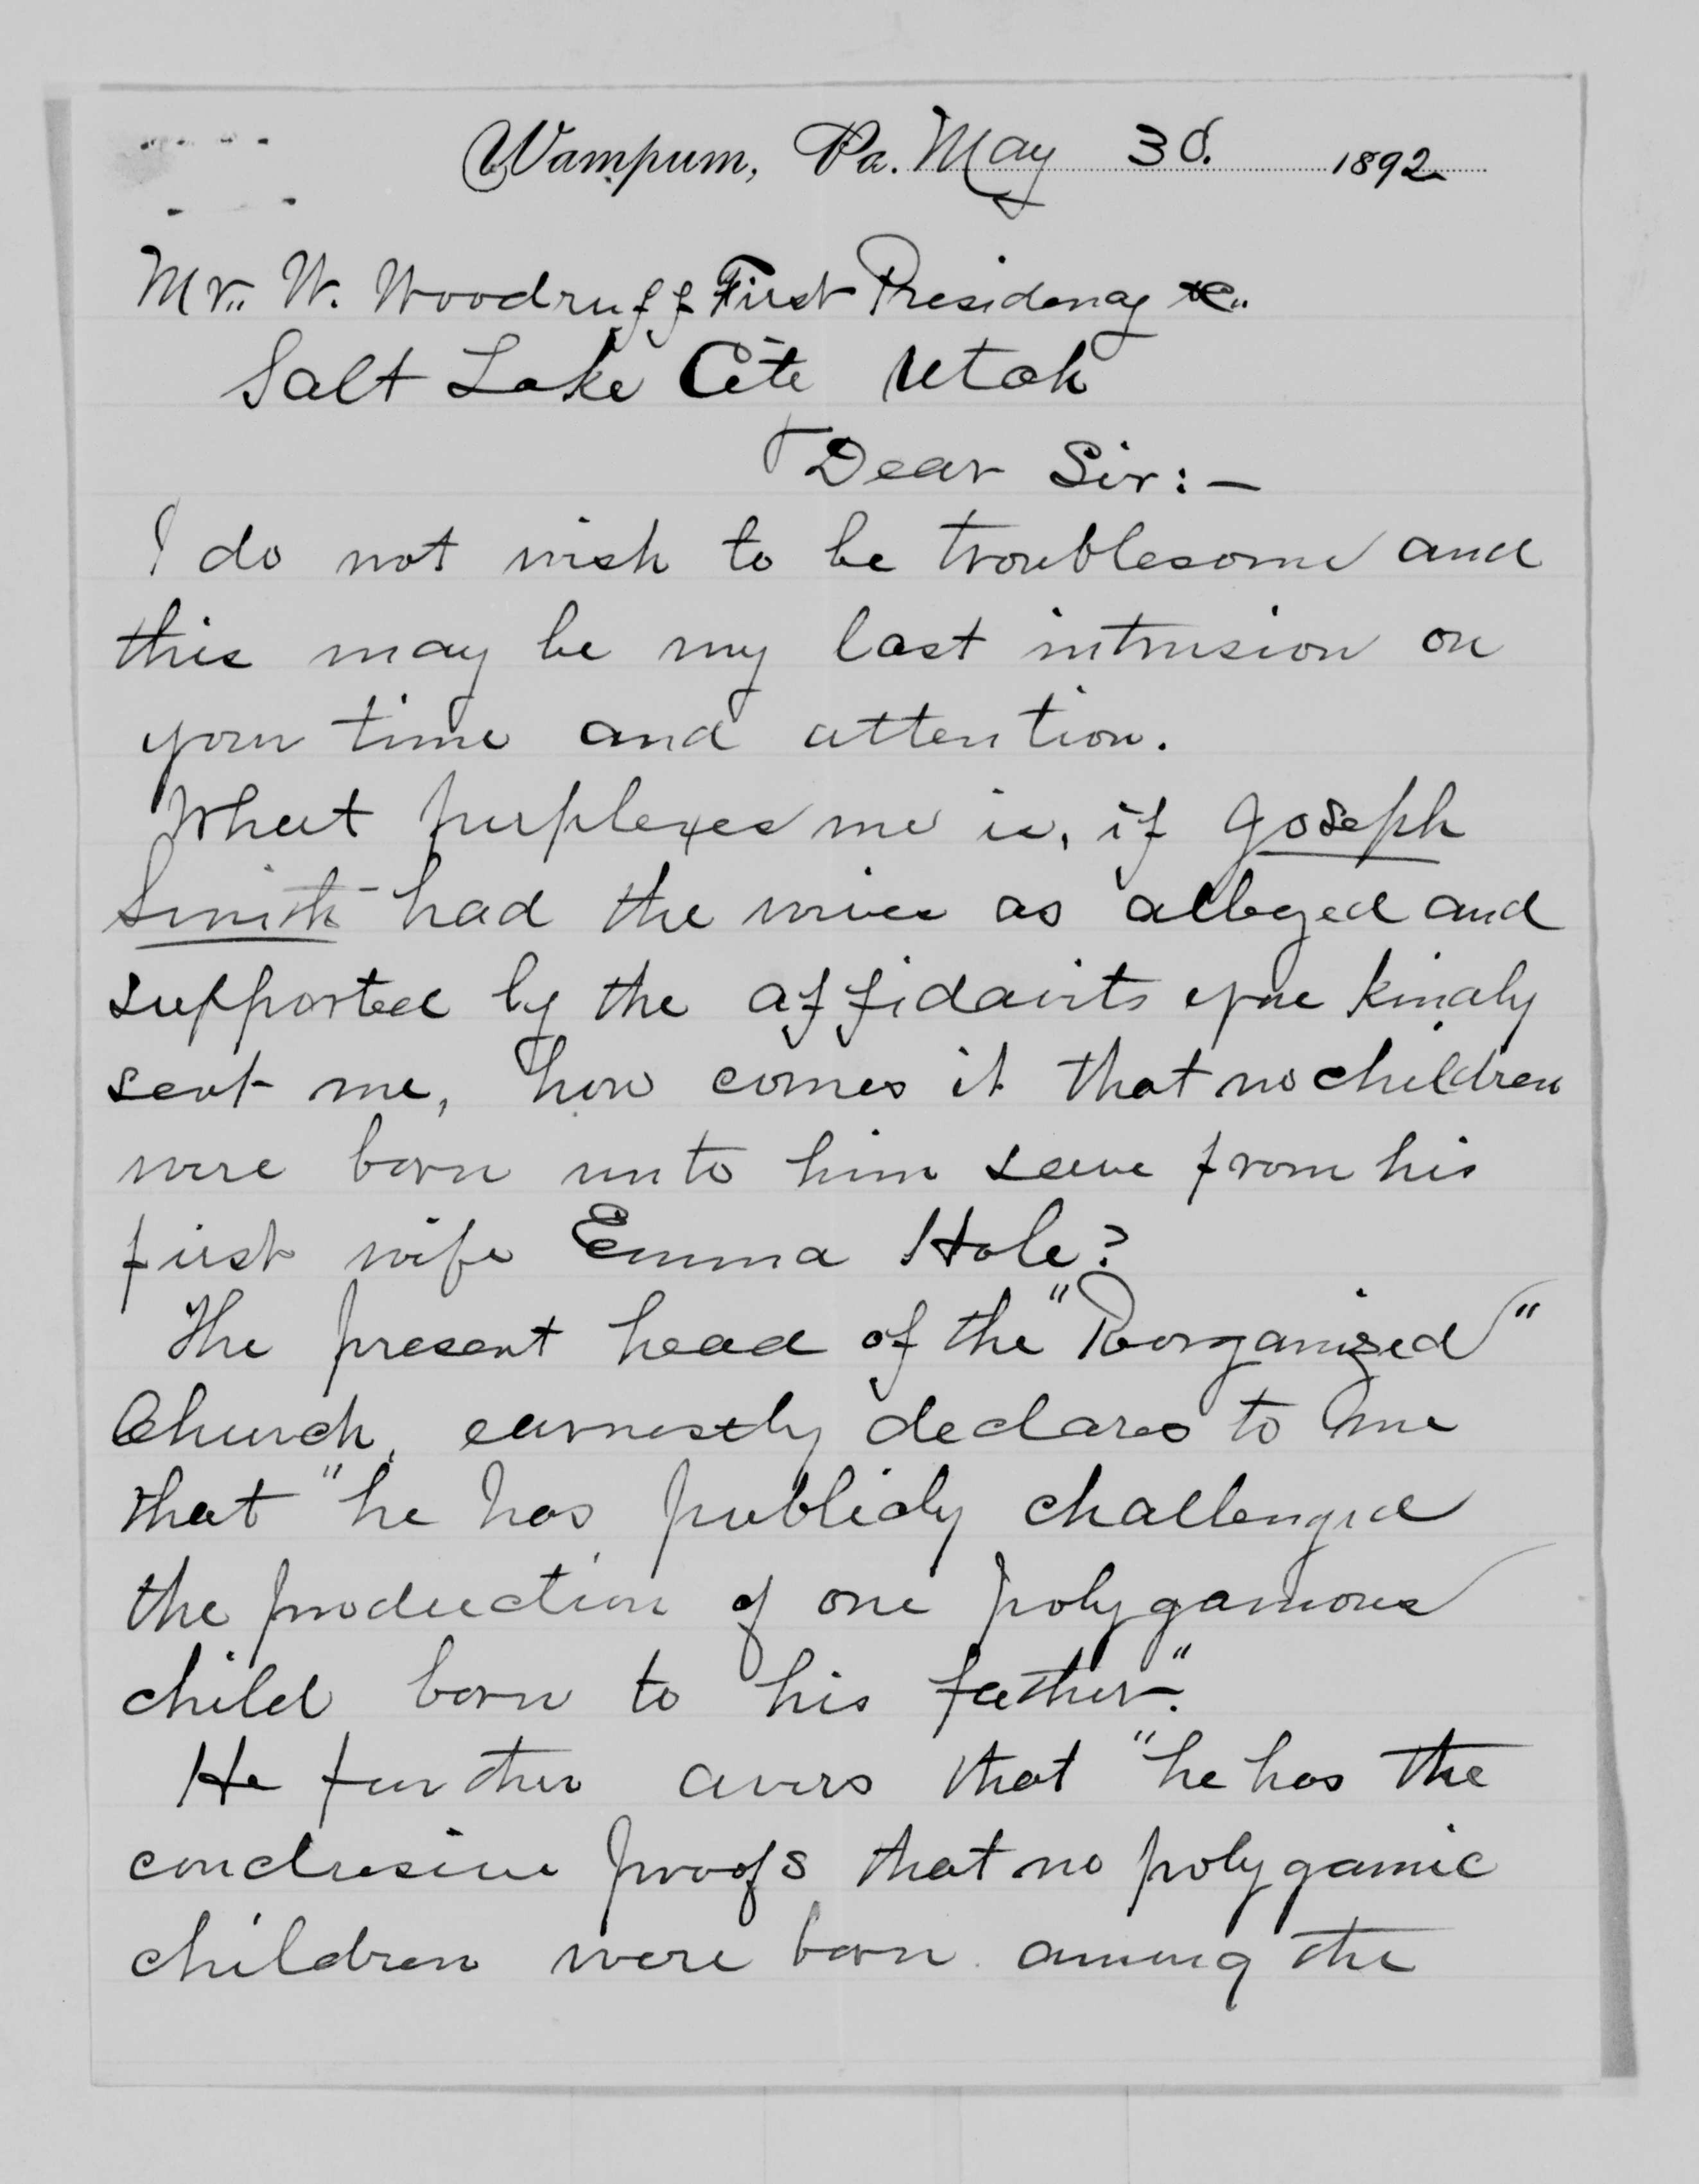 Wampum, Pa. May 30. 1892
Mr. W. Woodruff First Presidency &c.
Salt Lake Cite Utah
Dear Sir:—
I do not wish to be troublesome and
this may be my last intrusion on
your time and attention.
What purplexes me is, if Joseph
Smith had the wives as alleged and
supported by the affidavits you kindly
sent me, how comes it that no children
were born unto him save from his
first wife Emma Hale?
The present head of the "Reorganized"
Church, earnestly declares to me
that "he has publicly challenged
the production of one polygamous
child born to his father."
He further avers that "he has the
conclusive proofs that no polygamic
children were born among the